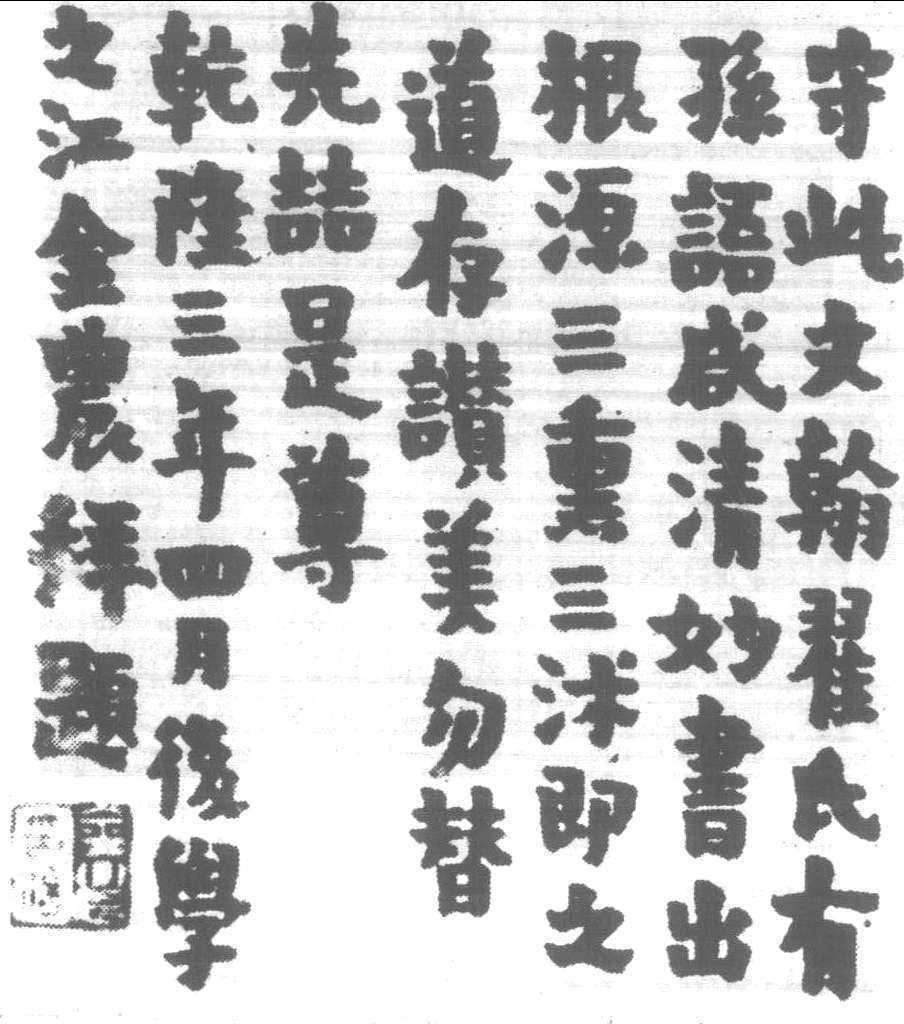 守此文翰翟氏有
孫語咸清妙書出
根源三熏三沐即之
道存讚美勿替
先喆是尊
乾隆三年四月後學
之江金農拜題